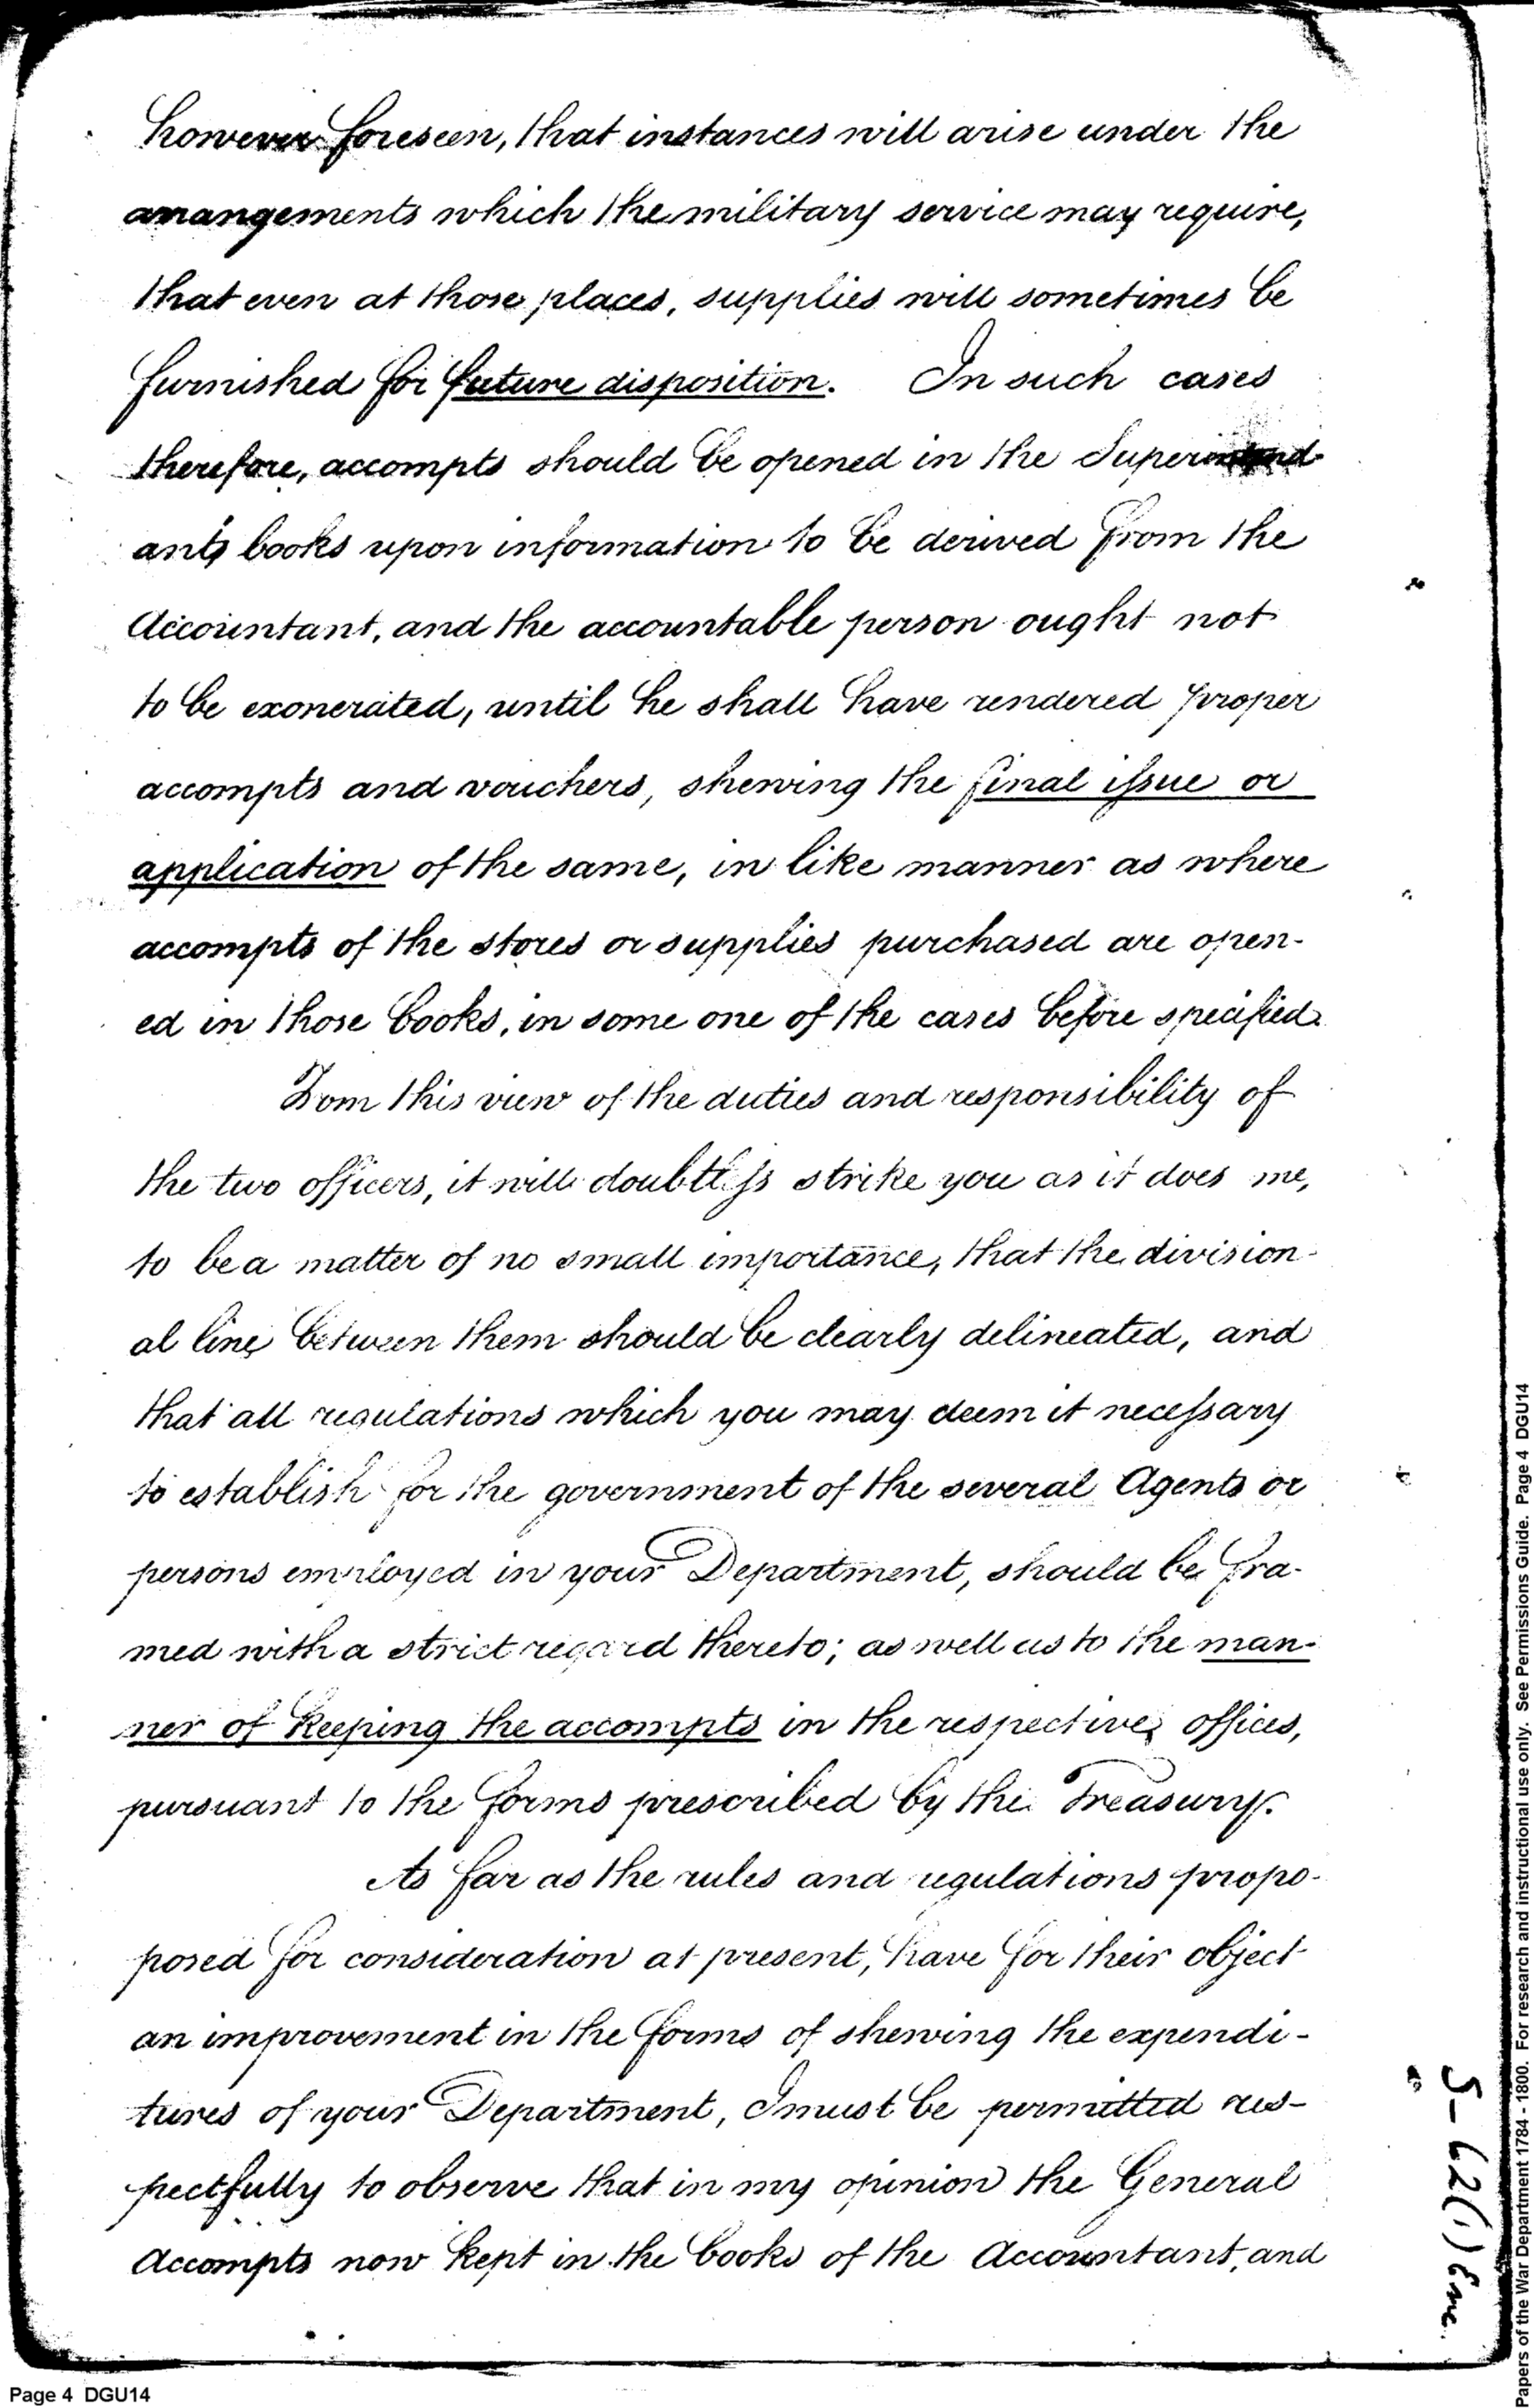 however foreseen, that instances will arise under the
arrangements which the military service may require,
that even at those places, supplies will sometimes be
furnished for future disposition. In such cases
therefore, accompts should be opened in the Superintend
ant's books upon information to be derived from the
Accountant, and the accountable person ought not
to be exonerated, until he shall have rendered proper
accompts and vouchers, shewing the final issue or
application of the same, in like manner as where
accompts of the stores or supplies purchased are open-
ed in those books, in some one of the cases before specified.
From this view of the duties and responsibility of
the two officers, it will doubtless strike you as it does me,
to be a matter of no small importance, that the division-
al line between them should be clearly delineated, and
that all regulations which you may deem it necessary
to establish for the government of the several Agents or
persons employed in your Department, should be fra-
med with a strict regard thereto; as well as to the man-
ner of keeping the accompts in the respective offices,
pursuant to the forms prescribed by the Treasury.
As far as the rules and regulations propo-
posed for consideration at present, have for their object
an improvement in the forms of shewing the expendi-
tures of your Department, I must be permitted res-
pectfully to observe that in my opinion the General
Accompts now kept in the books of the Accountant, and
5-62(1) Enc.
Papers of the War Department 1784 - 1800. For research and instructional use only. See Permissions Guide. Page 4 DGU14
Page 4 DGU14